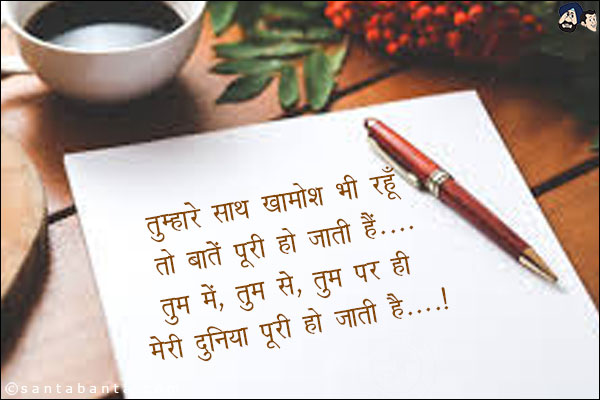 तुम्हारे साथ खामोश भी रहूँ
तो बातें पूरी हो जाती हैं....
तुम में, तुम से, तुम पर ही
मेरी दुनिया पूरी हो जाती है....!